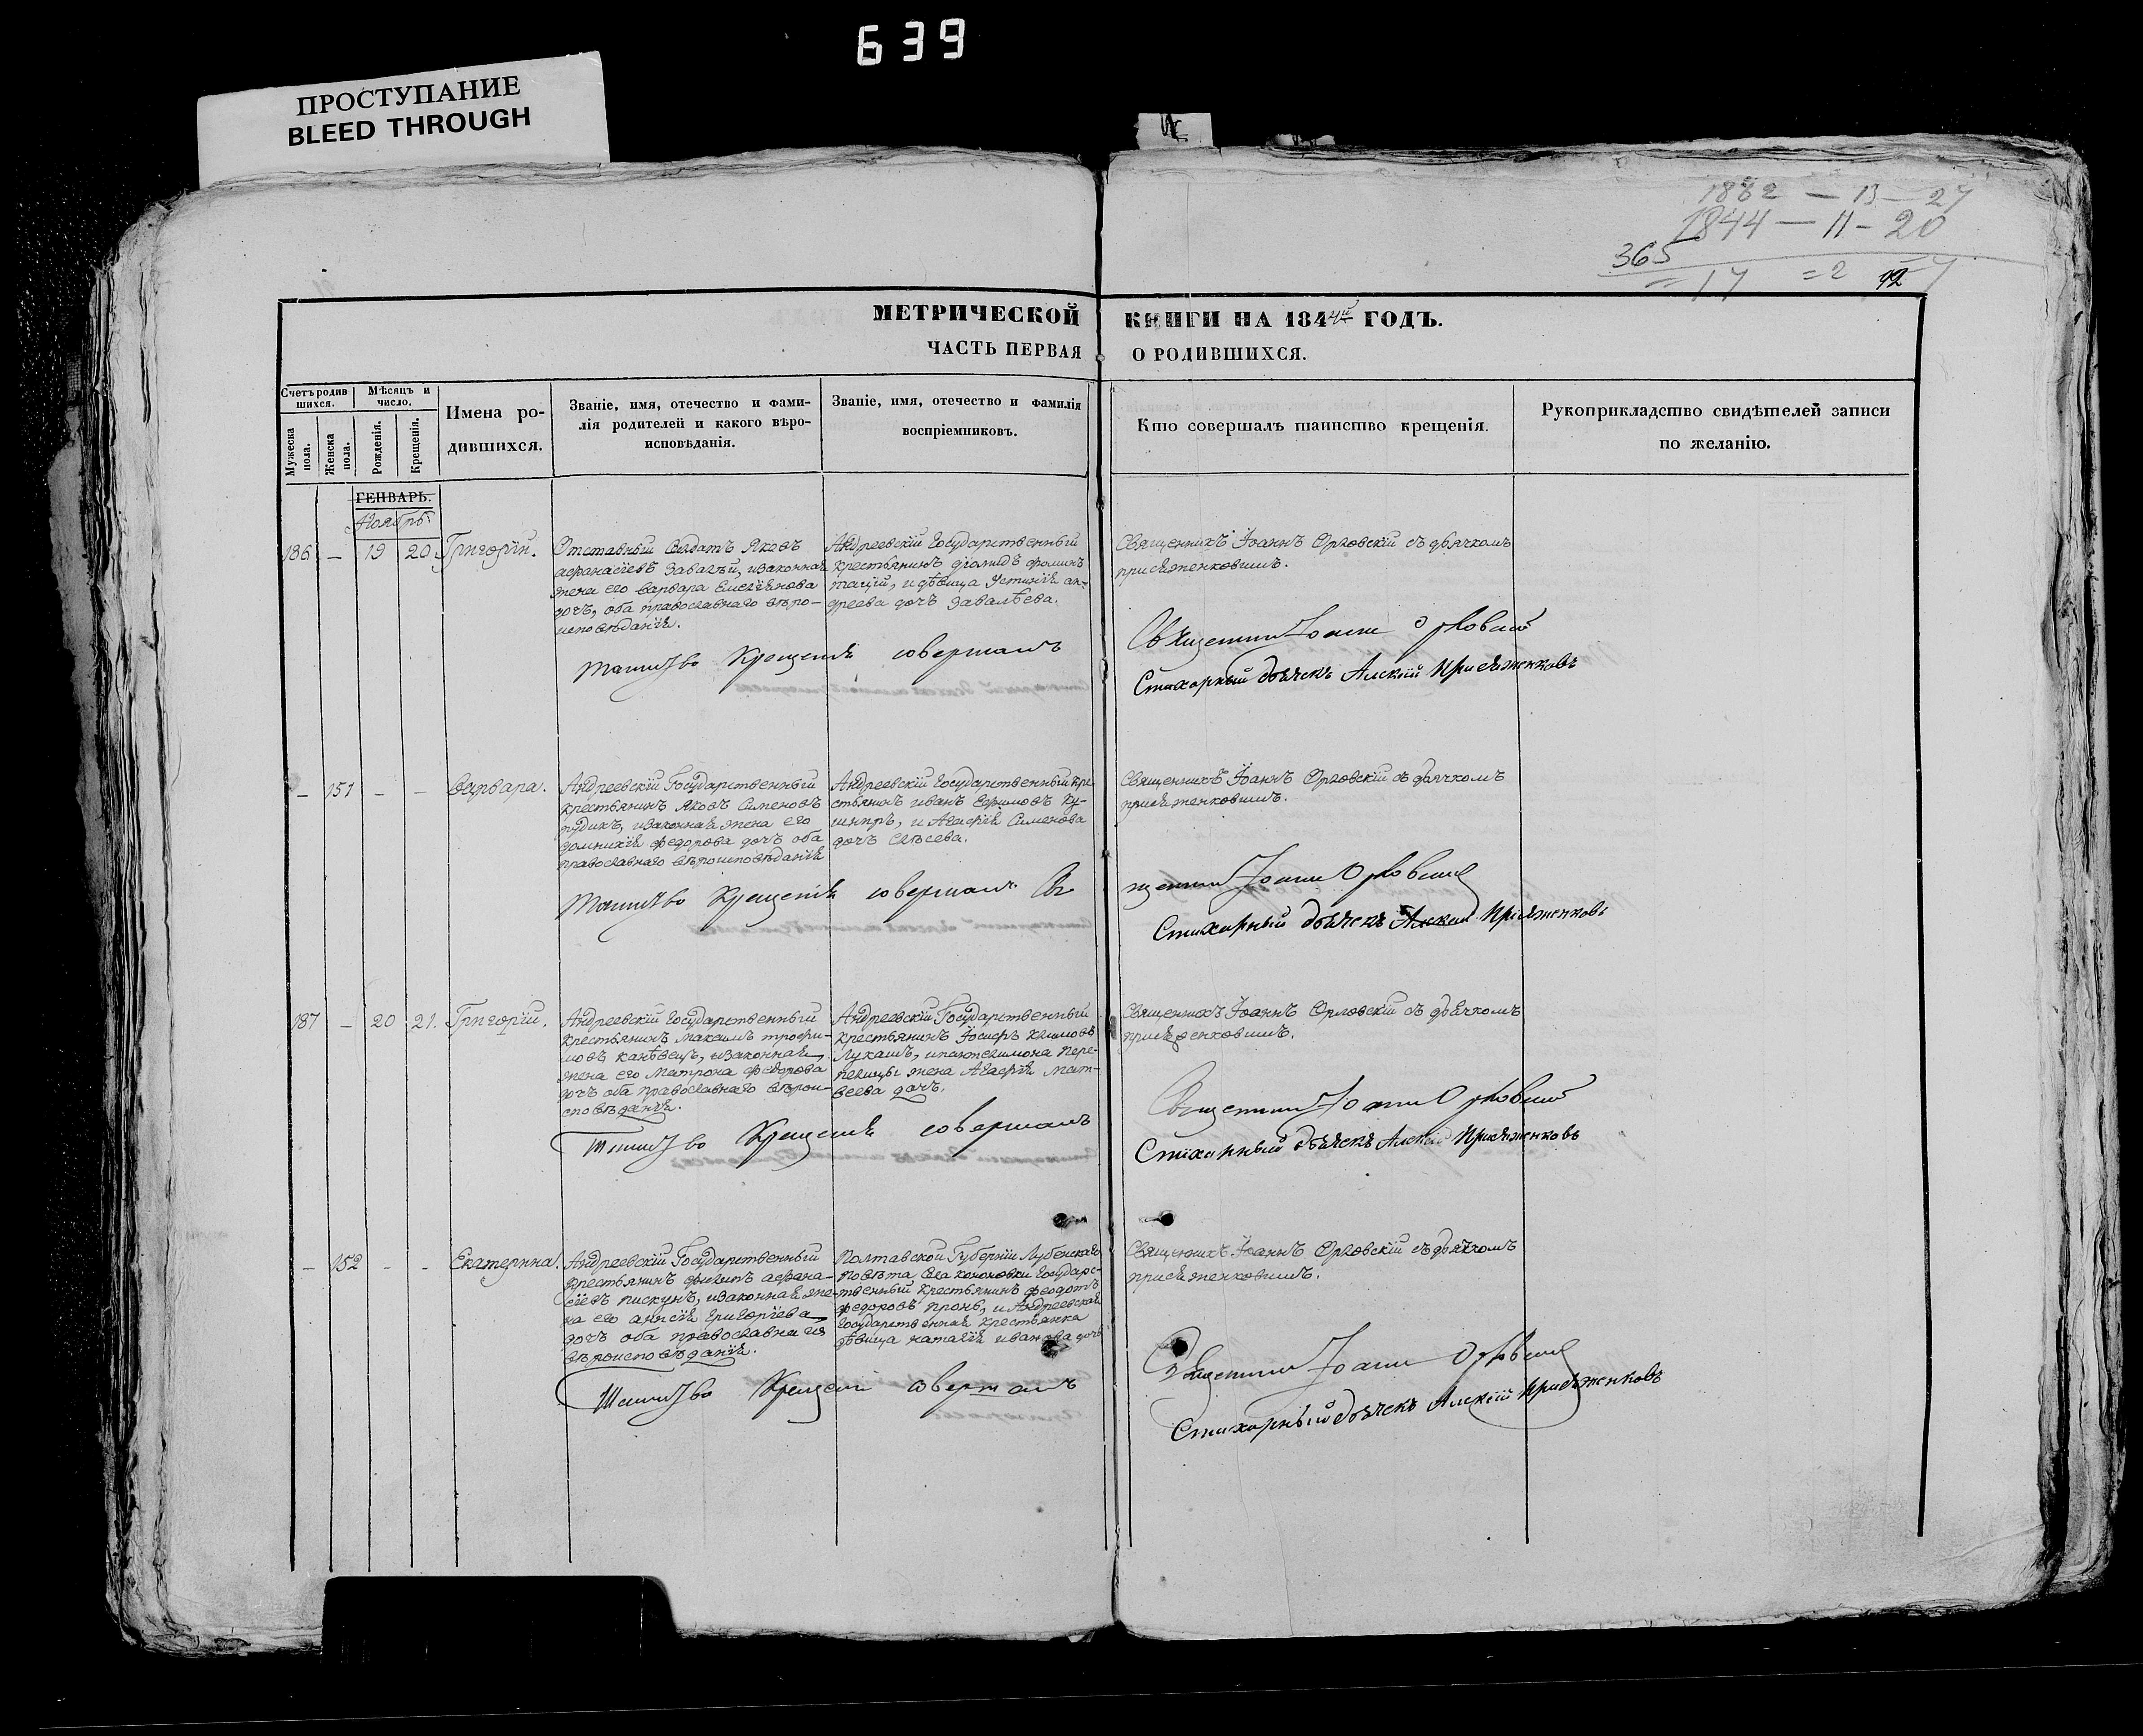 639
ПРОСТУПАНИЕ
BLEED THROUGH
1862 — 13 — 27
1844 — 11 — 20
365
= 17 = 2 — 7
92
МЕТРИЧЕСКОЙ КНИГИ НА 1844й ГОДЪ.
ЧАСТЬ ПЕРВАЯ О РОДИВШИХСЯ.
Счетъ родившихся.
Мужеска пола.
Женска пола.
Мѣсяцъ и число.
Рожденія.
Крещенія.
Имена родившихся.
Званіе, имя, отечество и фамилія родителей и какого вѣроисповѣданія.
Званіе, имя, отечество и фамилія воспріемниковъ.
Кто совершалъ таинство крещенія.
Рукоприкладство свидѣтелей записи по желанію.
ГЕНВАРЬ.
Ноябрь
186 — 19 20 Григорій.
Отставный Солдатъ Яковъ
Афанасіевъ Завалѣй, изаконная
жена его варвара Емелiянова
дочь, оба православнаго вѣро-
исповѣданія.
Андреевскій Государственный
крестьянинъ діомидъ фоминъ
и дѣвица Устинія ан-
дреева дочь Завалѣева.
Священникъ Іоаннъ Орловскій съ дьячкомъ
присяженковымъ.
Таинство Крещенія совершалъ Священник Іоанн Орловский
Стихарный дьячекъ Алексій Присяженковъ
— 151 — — Варвара.
Андреевскій Государственный
крестьянинъ Яковъ Сименовъ
рудикъ, изаконная жена его
домникія федорова дочь оба
православнаго вѣроисповѣданія
Андреевскій Государственный кре
стьянинъ иванъ Ефимовъ Ку-
шниръ, и Агафія Сименова
дочь Евсеева.
Священникъ Іоаннъ Орловскій съ дьячкомъ
присяженковымъ.
Таинство Крещенія совершалъ Священник Іоанн Орловский
Стихарный дьячекъ Алексій Присяженковъ
187 — 20 21. Григорій.
Андреевскій Государственный
крестьянинъ максимъ трофи-
мовъ канѣвецъ, изаконная
жена его Матрона федорова
дочь оба православнаго вѣрои-
сповѣданія.
Андреевскій Государственный
крестьянинъ Іосифъ Климовъ
Лукашъ, ипантелимона Пере-
пелицы жена Агафія Мат-
веева дочь.
Священникъ Іоаннъ Орловскій съ дьячкомъ
присяженковымъ.
Таинство Крещенія совершалъ Священник Іоанн Орловский
Стихарный дьячекъ Алексій Присяженковъ
— 152 — — Екатерина.
Андреевскій Государственный
крестьянинъ филипъ афана-
сіевъ пискунъ, изаконная же-
на его анисія григоріева
дочь оба православнаго
вѣроисповѣданія.
Полтавской Губерніи Лубенскаго
Повѣта, Села кононовки Государс-
твенный Крестьянинъ феодотъ
федоровъ пронь, и Андреевская
Государственная крестьянка
дѣвица наталія иванова дочь
Священникъ Іоаннъ Орловскій съ дьячкомъ
присяженковымъ.
Таинство Крещенія совершалъ Священник Іоанн Орловский
Стихарный дьячекъ Алексій Присяженковъ